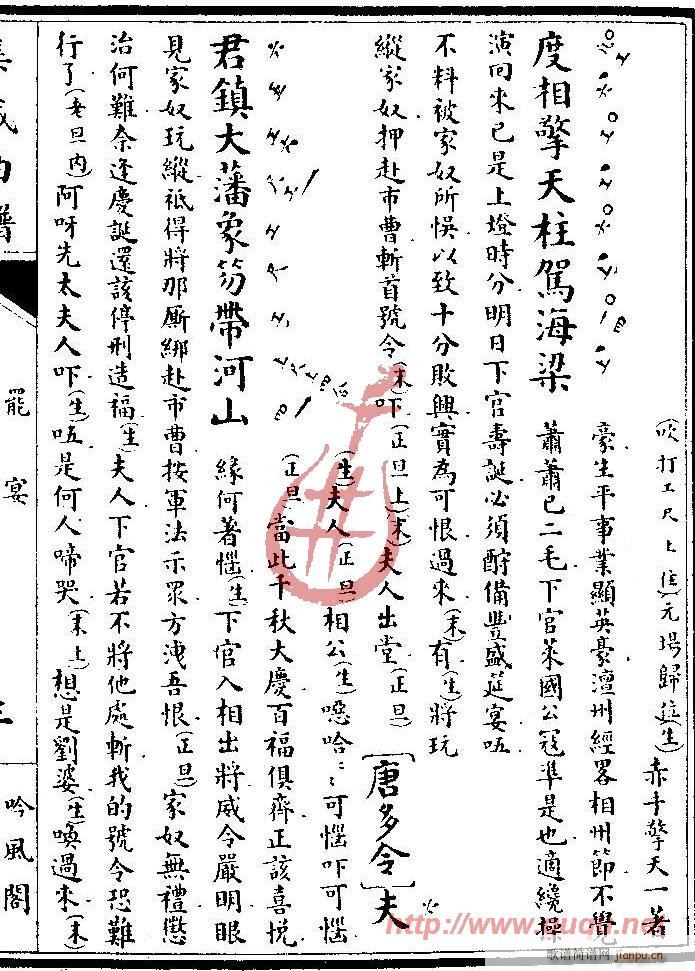 度相擎天柱駕海梁
(吹打工尺上住)元場歸位(生)赤手擎天一著
豪生平事業顯英豪澶州經畧相州節不覺
蕭蕭已二毛下官萊國公寇準是也適纔操
演回來已是上燈時分明日下官壽誕必須酧備豐盛筵宴㕶
不料被家奴所悞以致十分敗興實為可恨過來(末)有(生)將玩
縱家奴押赴市曹斬首號令(末)吓(正旦上)(末)夫人出堂(正旦)[唐多令]夫
君鎮大藩象笏帶河山
(生)夫人(正旦)相公(生)噁哈〻可惱吓可惱
(正旦)當此千秋大慶百福俱齊正該喜悅
緣何著惱(生)下官入相出將威令嚴明眼
見家奴玩縱祗得將那厮綁赴市曹按軍法示眾方洩吾恨(正旦)家奴無禮懲
治何難奈逢慶誕還該停刑造福(生)夫人下官若不將他處斬我的號令恐難
行了(老旦內)阿呀先太夫人吓(生)㕶是何人啼哭(末上)想是劉婆(生)喚過來(末)
集成曲譜
罷宴
吟風閣
http://www.ququn.net
歌谱简谱网
jianpu.cn